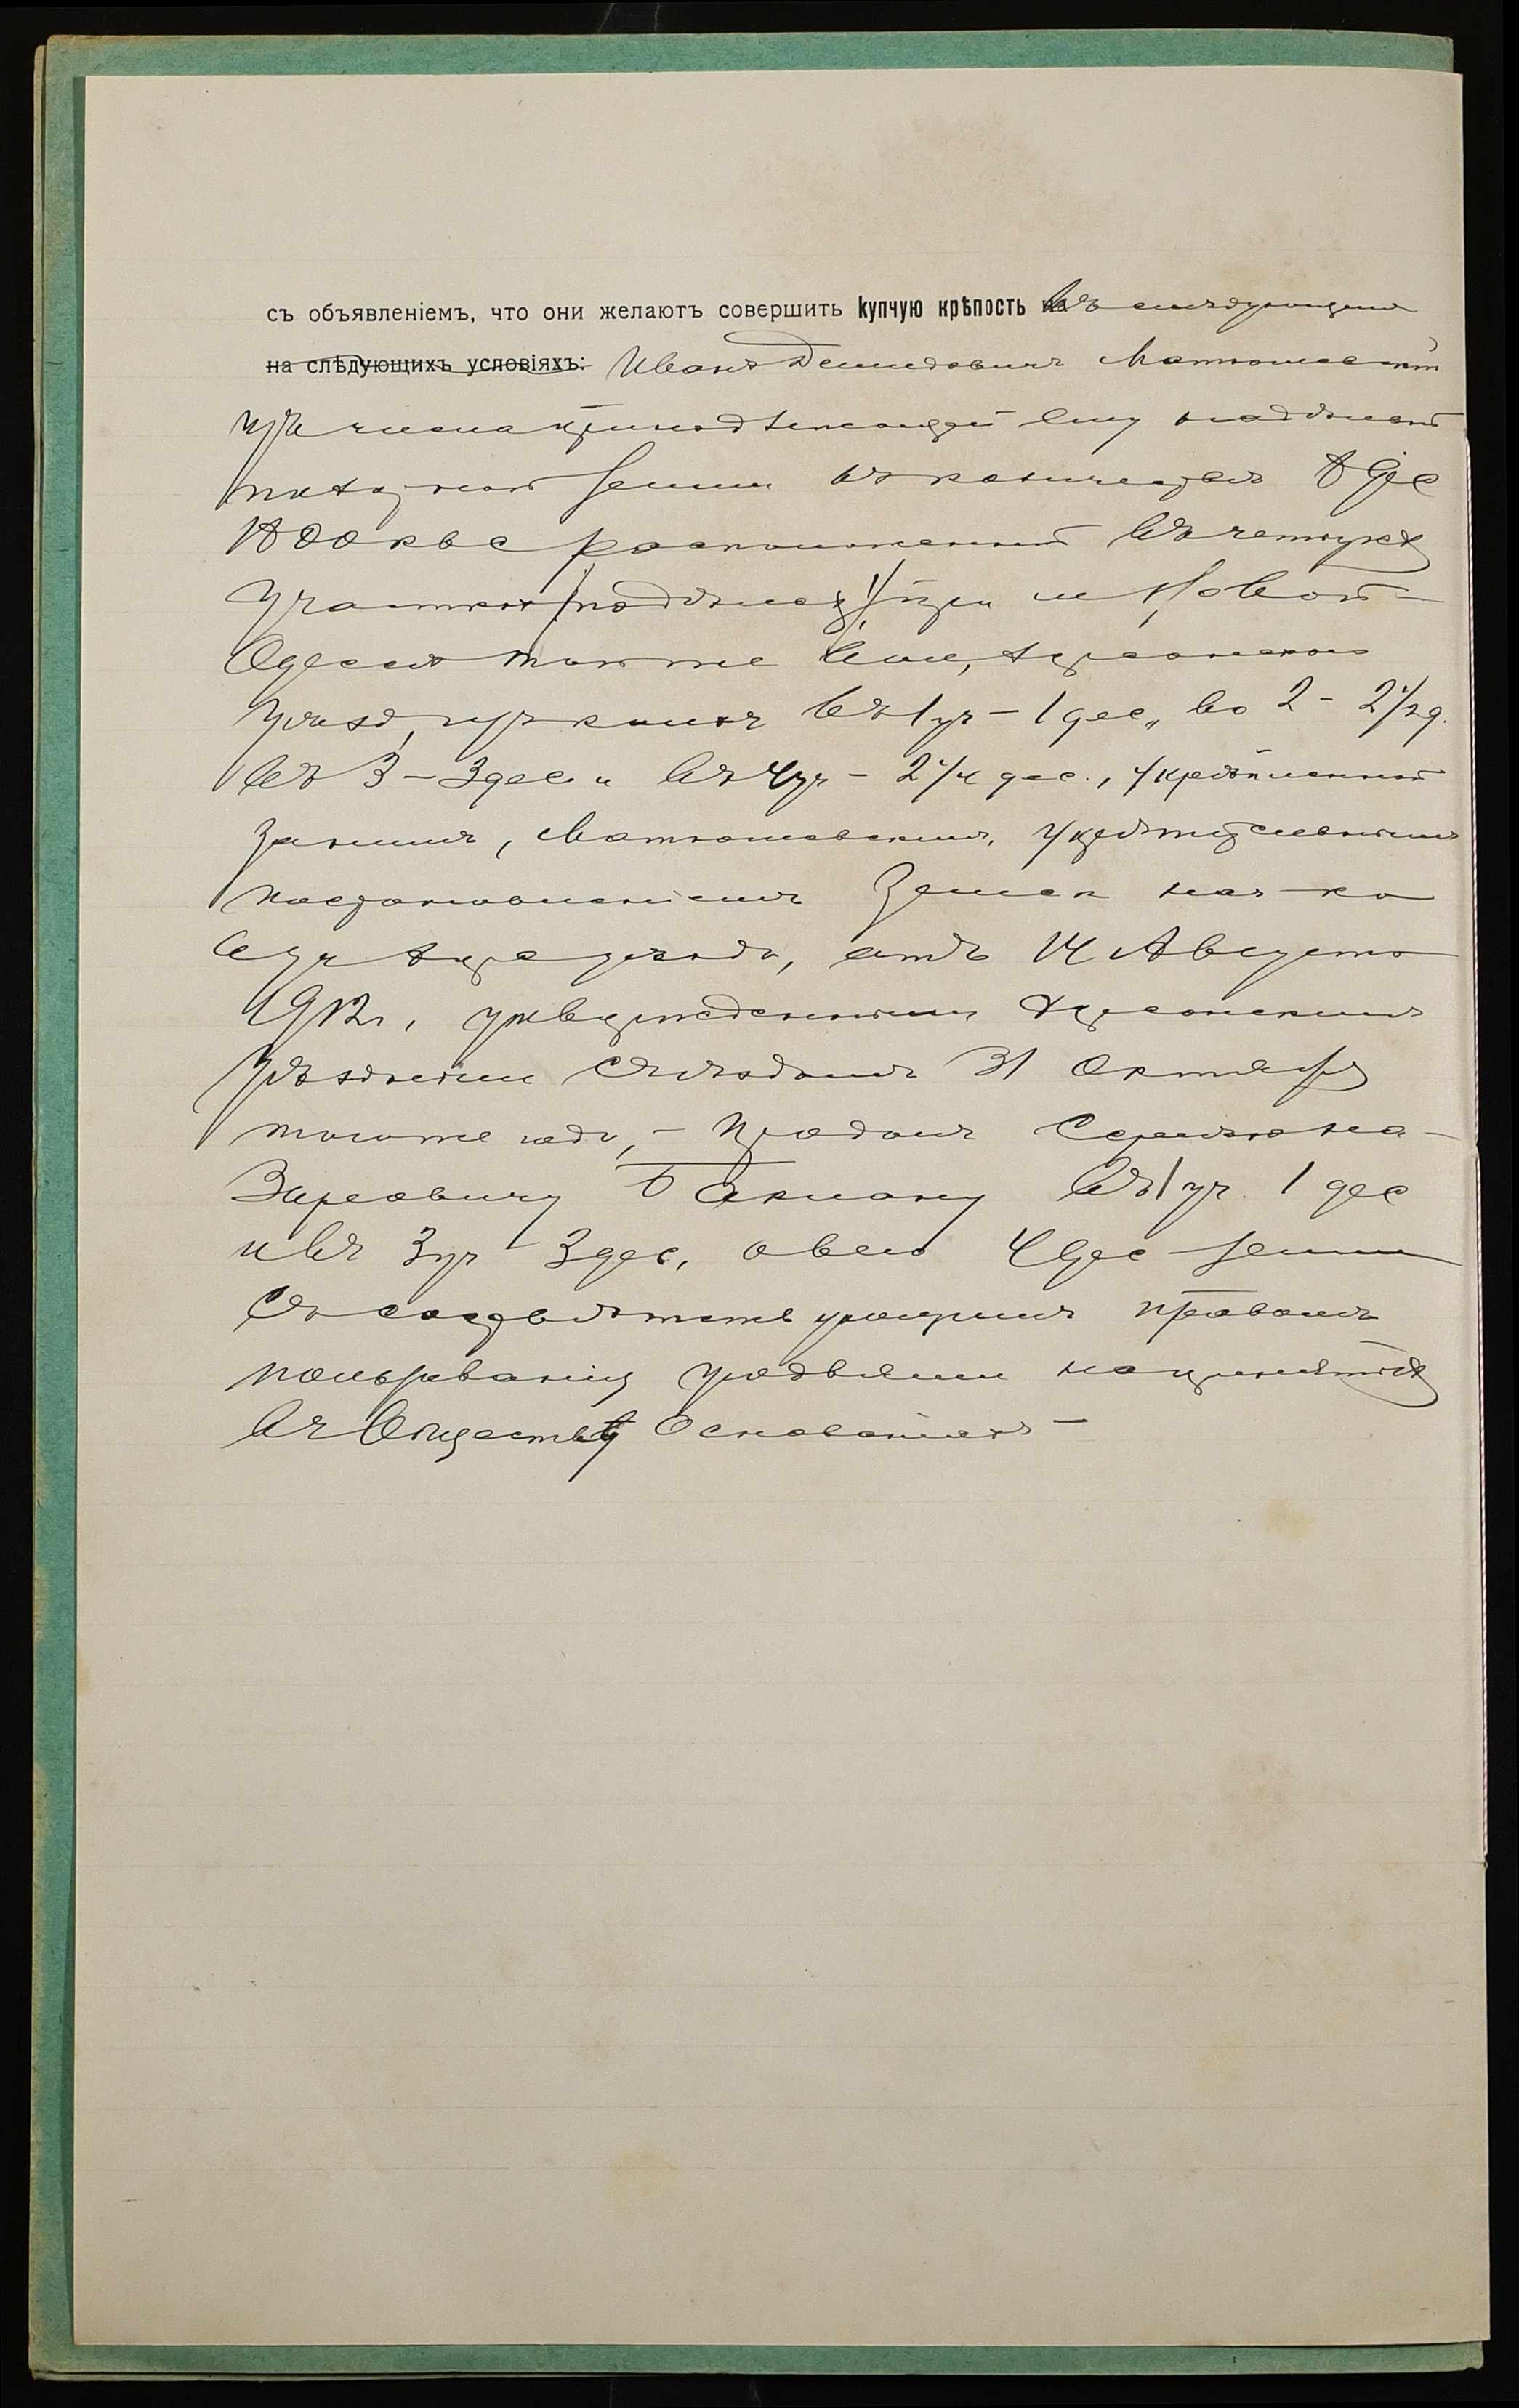 съ объявленіемъ, что они желаютъ совершить купчую крѣпость на въ слѣдующемъ
на слѣдующихъ условіяхъ: Иванъ Демидовичъ Матюшевскій
изъ числа принадлежащей ему надѣльной
пахатной земли въ количествѣ 8 дес
1800 кв с расположенной въ четырехъ
участкахъ при м Новой
Одессѣ тойже вол, Херсонскаго
уѣзда, въ 1 уч – 1 дес, во 2 – 2 1/2 д.
въ 3 – 3 дес и въ 4 уч – 2 1/4 дес., укрѣпленной
за нимъ, Матюшевскимъ,
постановленіемъ Земск нач-ка
6 уч Хер уѣзда, отъ 14 Августа
1912 г, утвержденнымъ Херсонскимъ
Уѣзднымъ Съѣздомъ 31 Октября
тогоже года, – продалъ
въ 1 уч. 1 дес
и въ 3 уч 3 дес, а всего 4 дес земли
съ соотвѣтствующимъ правомъ
пользованія угодьями на принятыхъ
въ Обществѣ основаніяхъ –